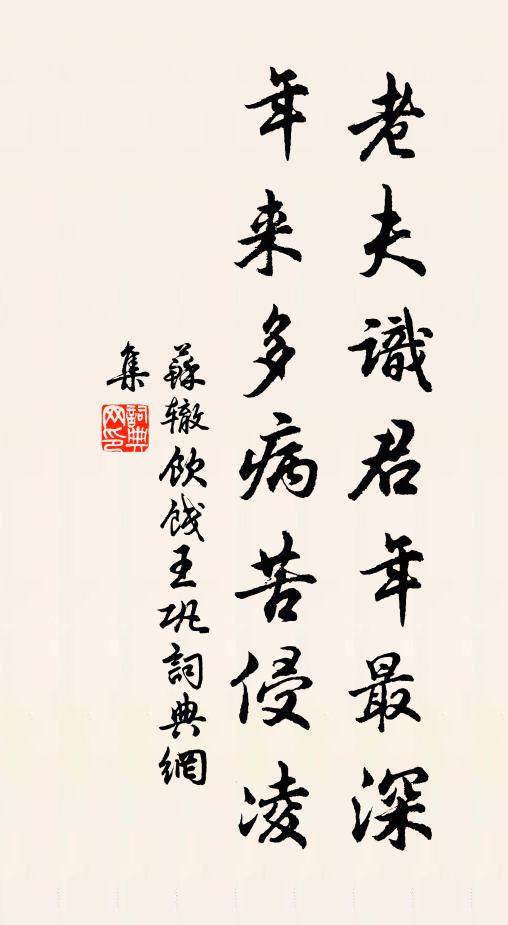 老夫識君年最深
年来多病苦侵凌
蘇辙飲餞王巩詞典網
集
詞典网印